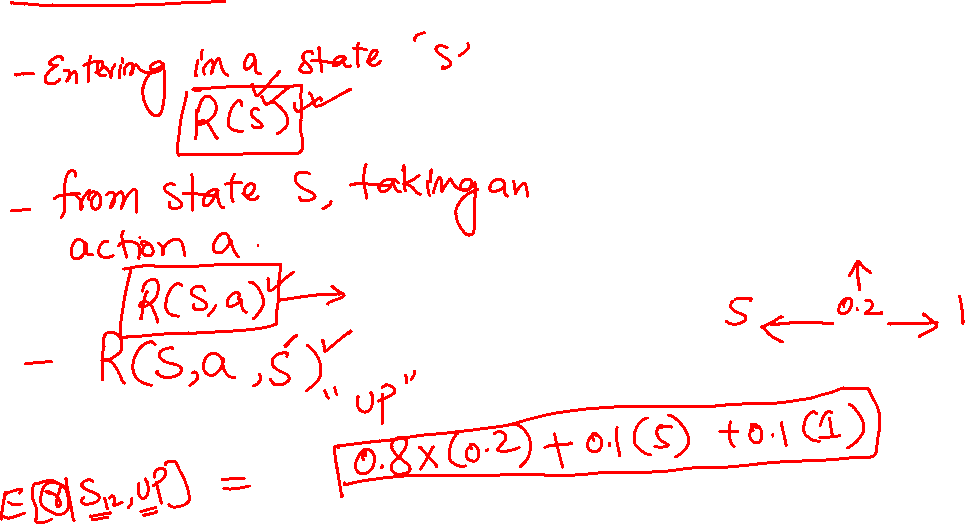 - Entering in a state 's'
R(s)
- from state S, taking an
action a.
R(S,a) →
- R(S,a,S')
↑
5 ← 0.2 → 1
"UP"
E[r|S12,UP] = 0.8x(0.2)+0.1(5) +0.1(1)